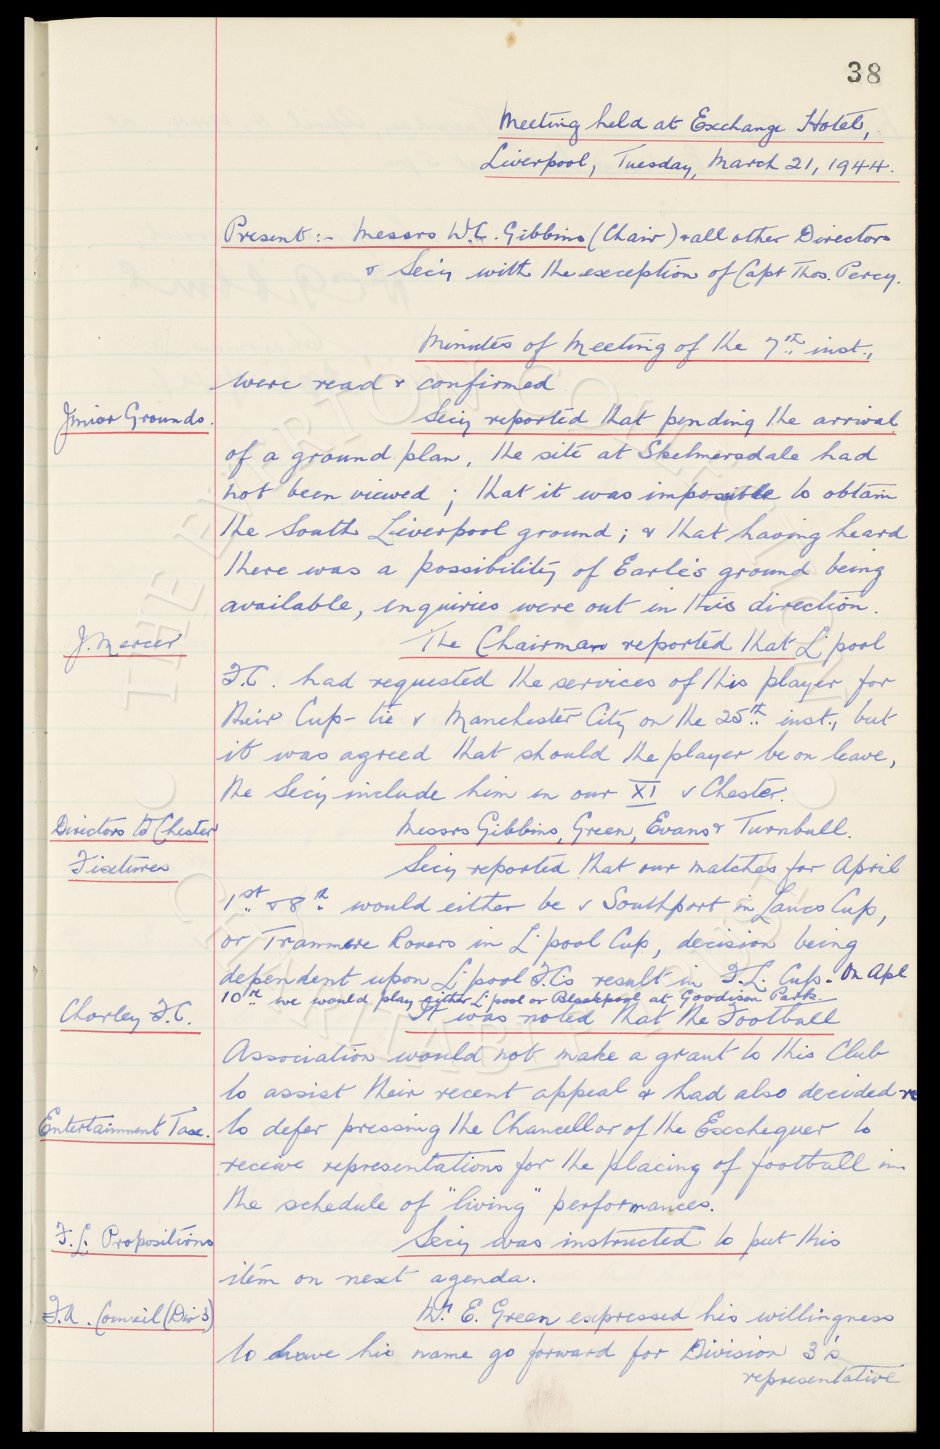 38
Meeting held at Exchange Hotel,
Liverpool, Tuesday, March 21, 1944.
Present:- Messrs W.C. Gibbins (Chair) & all other Directors
& Sec'y with the exception of Capt Thos. Percy.
Minutes of Meeting of the 7th inst.,
were read & confirmed
Junior Grounds.
Sec'y reported that pending the arrival
of a ground plan, the site at Skelmersdale had
not been viewed; that it was impossible to obtain
the South Liverpool ground; & that having heard
there was a possibility of Earle's ground being
available, enquiries were out in this direction.
J. Mercer
The Chairman reported that L'pool
F.C. had requested the services of this player for
their Cup-tie v Manchester City on the 25th inst., but
it was agreed that should the player be on leave,
the Sec'y include him in our XI v Chester.
Directors to Chester
Messrs Gibbins, Green, Evans & Turnbull.
Fixtures
Sec'y reported that our matches for April
1st & 8th would either be v Southport in Lancs Cup,
or Tranmere Rovers in L'pool Cup, decision being
dependent upon L'pool F.C's result in F.L. Cup. On Apl
10th we would play either L'pool or Blackpool at Goodison Park.
Chorley F.C.
It was noted that the Football
Association would not make a grant to this Club
to assist their recent appeal & had also decided re
Entertainment Tax.
to defer pressing the Chancellor of the Exchequer to
receive representations for the placing of football in
the schedule of "living" performances.
F.L. Propositions
Sec'y was instructed to put this
item on next agenda.
F.A. Council (Div 3)
Mr. E. Green expressed his willingness
to have his name go forward for Division 3's
representative
THE EVERTON COLLECTION
CHARITABLE TRUST